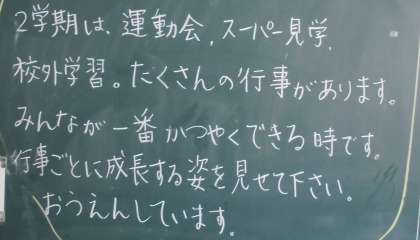 2学期は、運動会、スーパー見学、
校外学習。たくさんの行事があります。
みんなが一番かつやくできる時です。
行事ごとに成長する姿を見せて下さい。
おうえんしています。